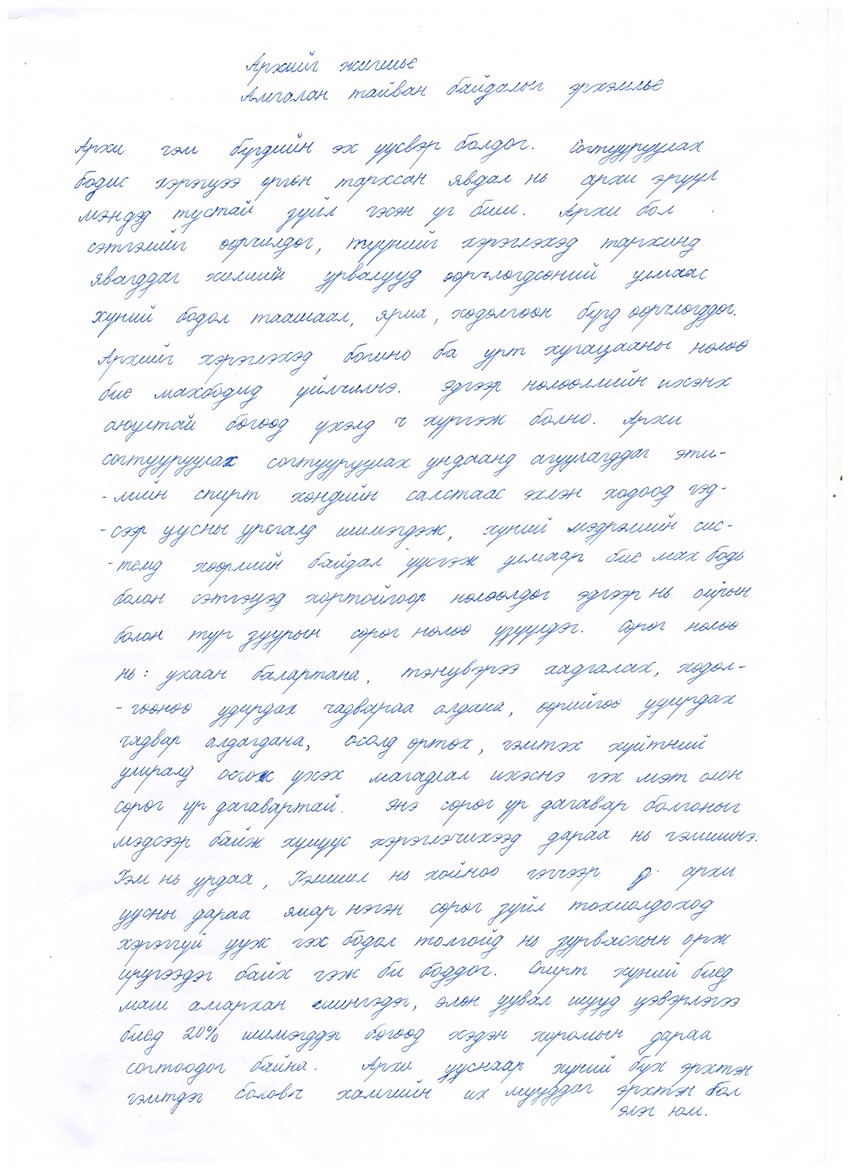 Архийг жигшье
Амгалан тайван байдалыг эрхэмлье
Архи гэм бүгдийн эх үүсвэр болдог. Согтууруулах
бодис хэрэгцээ өргөн тархсан явдал нь архи эрүүл
мэндэд тустай зүйл гэсэн үг биш. Архи бол
сэтгэлийг өөрчилдөг, түүнийг хэрэглэхэд тархинд
явагддаг химийн урвалууд өөрчлөгдсөний улмаас
хүний бодол таашаал, яриа, хөдөлгөөн бүгд өөрчлөгддөг.
Архийг хэрэглэхэд богино ба урт хугацааны нөлөө
бие махбодид үйлчилнэ. Эдгээр нөлөөлмийн ихэнх
аюултай бөгөөд үхэлд ч хүргэж болно. Архи
согтууруулах согтууруулах ундаанд агуулагддаг эти-
-лийн спирт хөндийн салстаас эхлэн ходоод гэд-
-сээр цусны урсгалд шимэгдэж, хүний мэдрэлийн сис-
-темд хөөрлийн байдал үүсгэж улмаар бие мах бодь
болон сэтгэцэд хортойгоор нөлөөлдөг эдгээр нь ойрын
болон түр зуурын сөрөг нөлөө үзүүлдэг. Сөрөг нөлөө
нь: ухаан балартана, тэнцвэрээ хадгалах, хөдөл-
-гөөнөө удирдах чадвараа алдана, өөрийгөө удирдах
чадвар алдагдана, Осолд өртөх, гэмтэх хүйтний
улиралд осгож үхэх магадлал ихэснэ гэх мэт олон
сөрөг үр дагавартай. Энэ сөрөг үр дагавар болгоныг
мэдсээр байж хүмүүс хэрэглэчихээд дараа нь гэмшинэ.
Гэм нь урдаа, Гэмшил нь хойноо гэгчээр архи
уусны дараа ямар нэгэн сөрөг зүйл тохиолдоход
хэрэггүй ууж гэх бодол толгойд нь зурвасхын орж
ирүгээдэг байх гэж би боддог. Спирт хүний биед
маш амархан шингэдэг, олон уувал шууд цэвэрлэгээ
биед 20% шимэгддэг бөгөөд хэдэн хоромын дараа
согтоодог байна. Архи ууснаар хүний бүх эрхтэн
гэмтдэг боловч хамгийн их мууддаг эрхтэн бол
элэг юм.